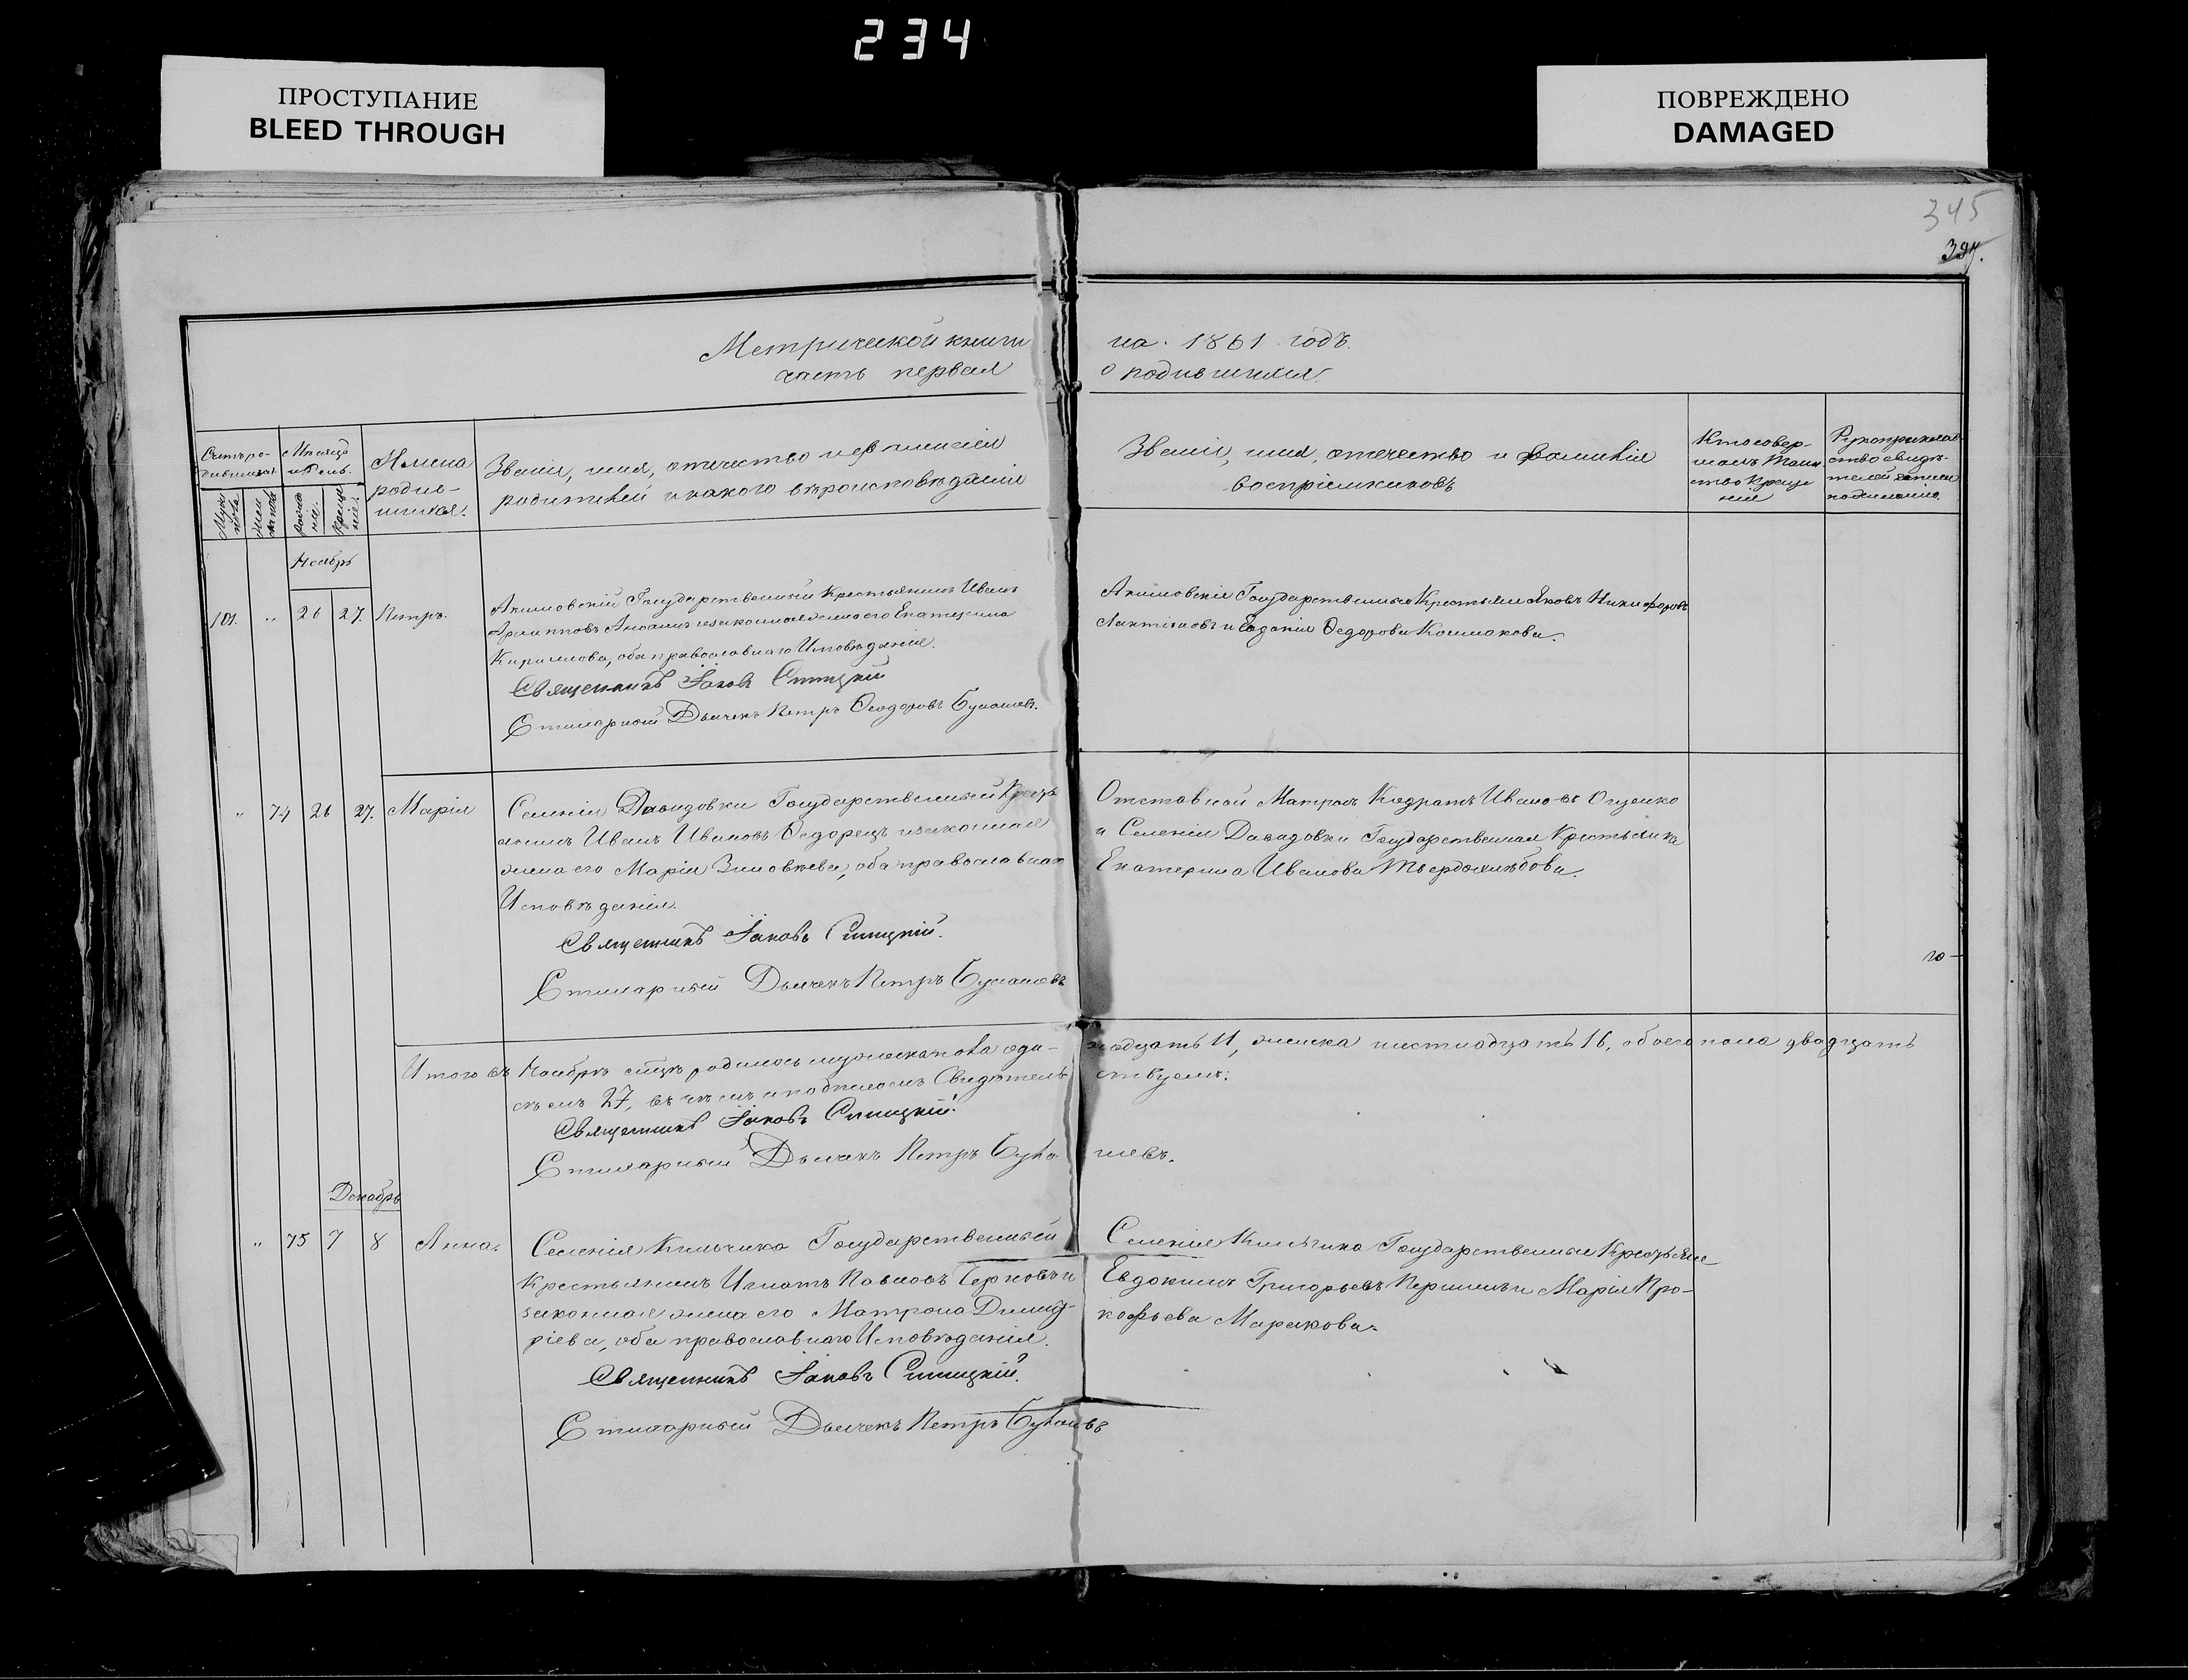 234
ПРОСТУПАНИЕ
BLEED THROUGH
ПОВРЕЖДЕНО
DAMAGED
345
Метрической книги на 1861 годъ.
часть первая о родившихся.
Счетъ ро-
дившихся
Мѣсяцъ
и день.
Имена
родив-
шихся.
Званіе, имя, отечество и фамилія
родителей и какого вѣроисповѣданія
Званіе, имя, отечество и фамилія
воспріемниковъ
Кто совер-
шалъ таин
ство креще
нія
Рукоприклад
ство свидѣ-
телей записи
по желанію
Ноябрь
101. " 26 27. Петръ.
Акимовскій Государственный Крестьянинъ Иванъ
Архиповъ и законная жена его Екатерина
Кирилова, оба православнаго Исповѣданія.
Священникъ Іаковъ
Стихарный Дьячекъ Петръ Ѳеодоровъ
Акимовскіе Государственные Крестьяне Яковъ Никифоровъ
и Евдокія Ѳедорова
" 74 26 27. Марія
Селенія Давидовки Государственный Крест
янинъ Иванъ Ивановъ Ѳедорецъ и законная
жена его Марія Зиновьева, оба православнаго
Исповѣданія.
Священникъ Іаковъ
Стихарный Дьячекъ Петръ
Отставной Матросъ Кодратъ Ивановъ Оценко
и Селенія Давидовки Государственная Крестьянка
Екатерина Иванова Твердохлѣбова.
Итого въ Ноябрѣ мѣсяцѣ родилось мужеска пола оди-
надцать 11, женска шестнадцать 16, обоего пола двадцать
семь 27, въ чемъ и подписомъ Свидѣтель
ствуемъ.
Священникъ Іаковъ
Стихарный Дьячекъ Петръ
Декабрь
" 75 7 8 Анна.
Селенія Кильчика Государственный
Крестьянинъ Игнатъ Павловъ и
законная жена его Матрона Димит-
ріева, оба православнаго Исповѣданія.
Священникъ Іаковъ
Стихарный Дьячекъ Петръ
Селенія Кильчика Государственные Крестьяне
Евдокимъ Григорьевъ и Марія Про-
кофьева Маракова.